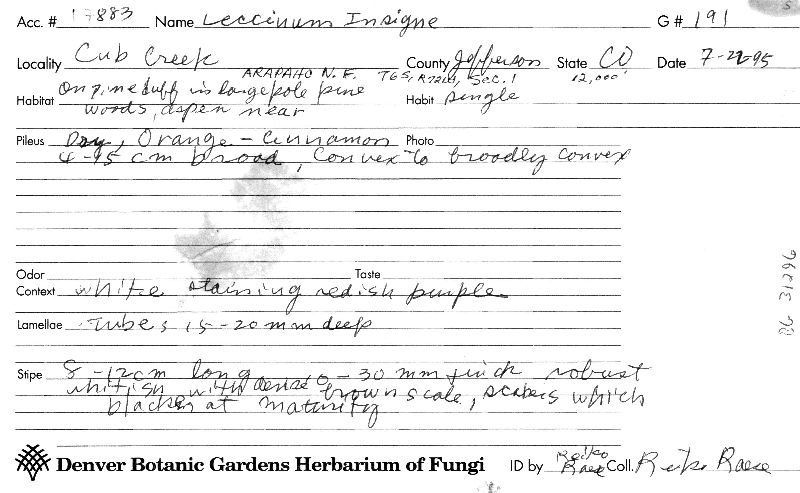 Acc. # 17883 Name Leccinum Insigne G # 191
Locality Cub Creek County Jefferson State CO Date 7-22-95
ARAPAHO N.F. T6S, R72W, Sec. 1 12,000'
Habitat On pine duff in logepole pine Habit single
woods, aspen near
Pileus Dry, Orange - Cinnamon Photo
4-15 cm broad, Convex to broadly convex
Odor Taste
Context white staining redish purple
Lamellae Tubes 15-20 mm deep
Stipe 8-12cm long, 0-30 mm thick robust
whitish with dense brown scale, scabers which
blacken at maturity
Denver Botanic Gardens Herbarium of Fungi ID by Reiko Raese Coll. Reiko Raese